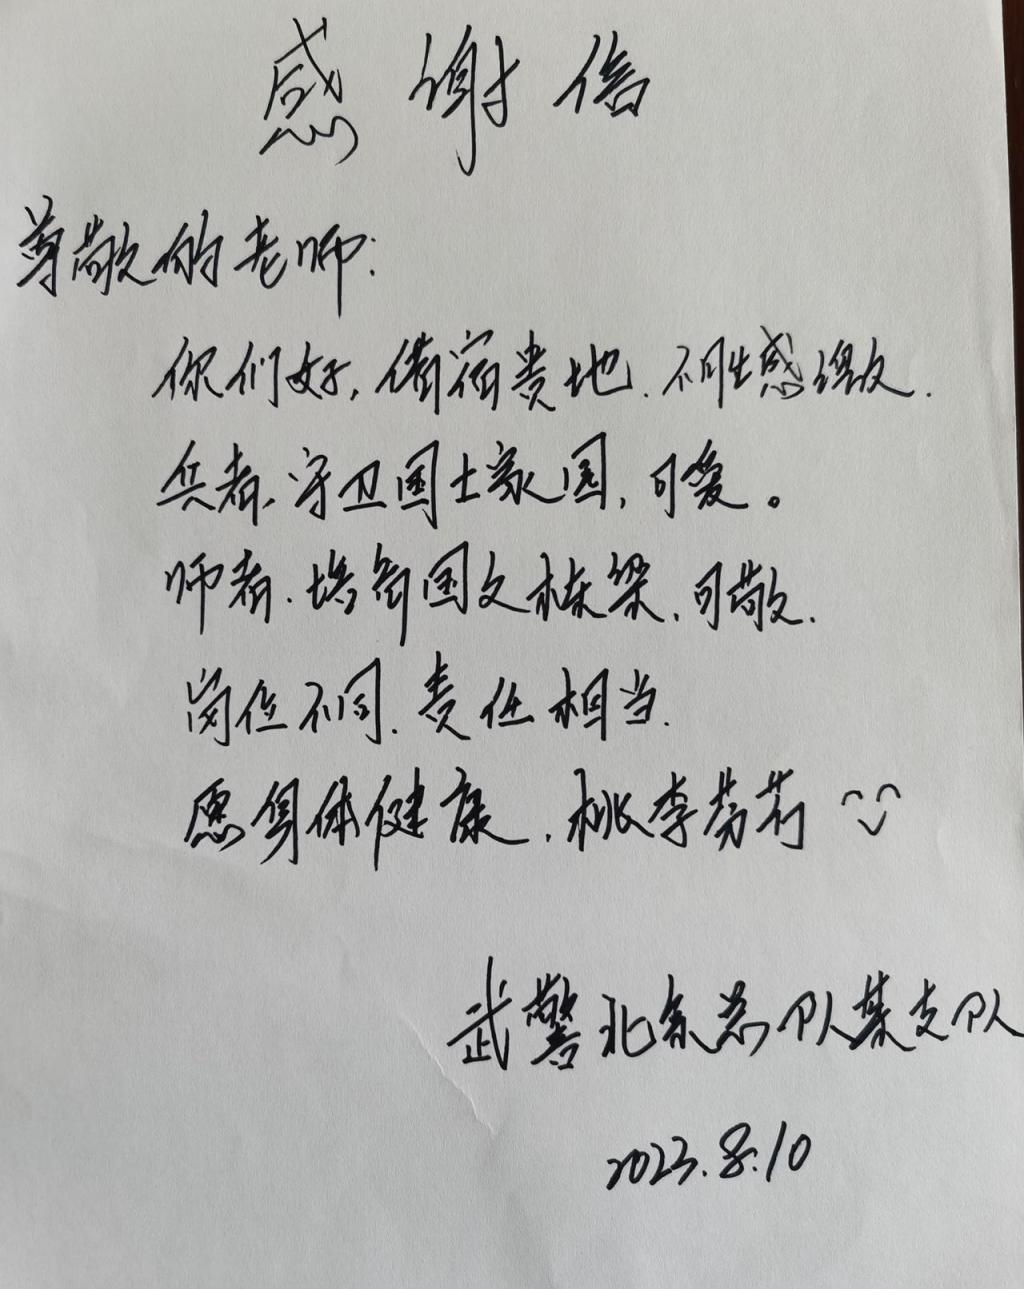 感谢信
尊敬的老师:
你们好,借宿贵地.不胜感激.
兵者,守卫国土家国,可爱。
师者.培育国之栋梁.可敬.
岗位不同.责任相当.
愿身体健康.桃李芬芳
武警北京总队某支队
2023.8.10